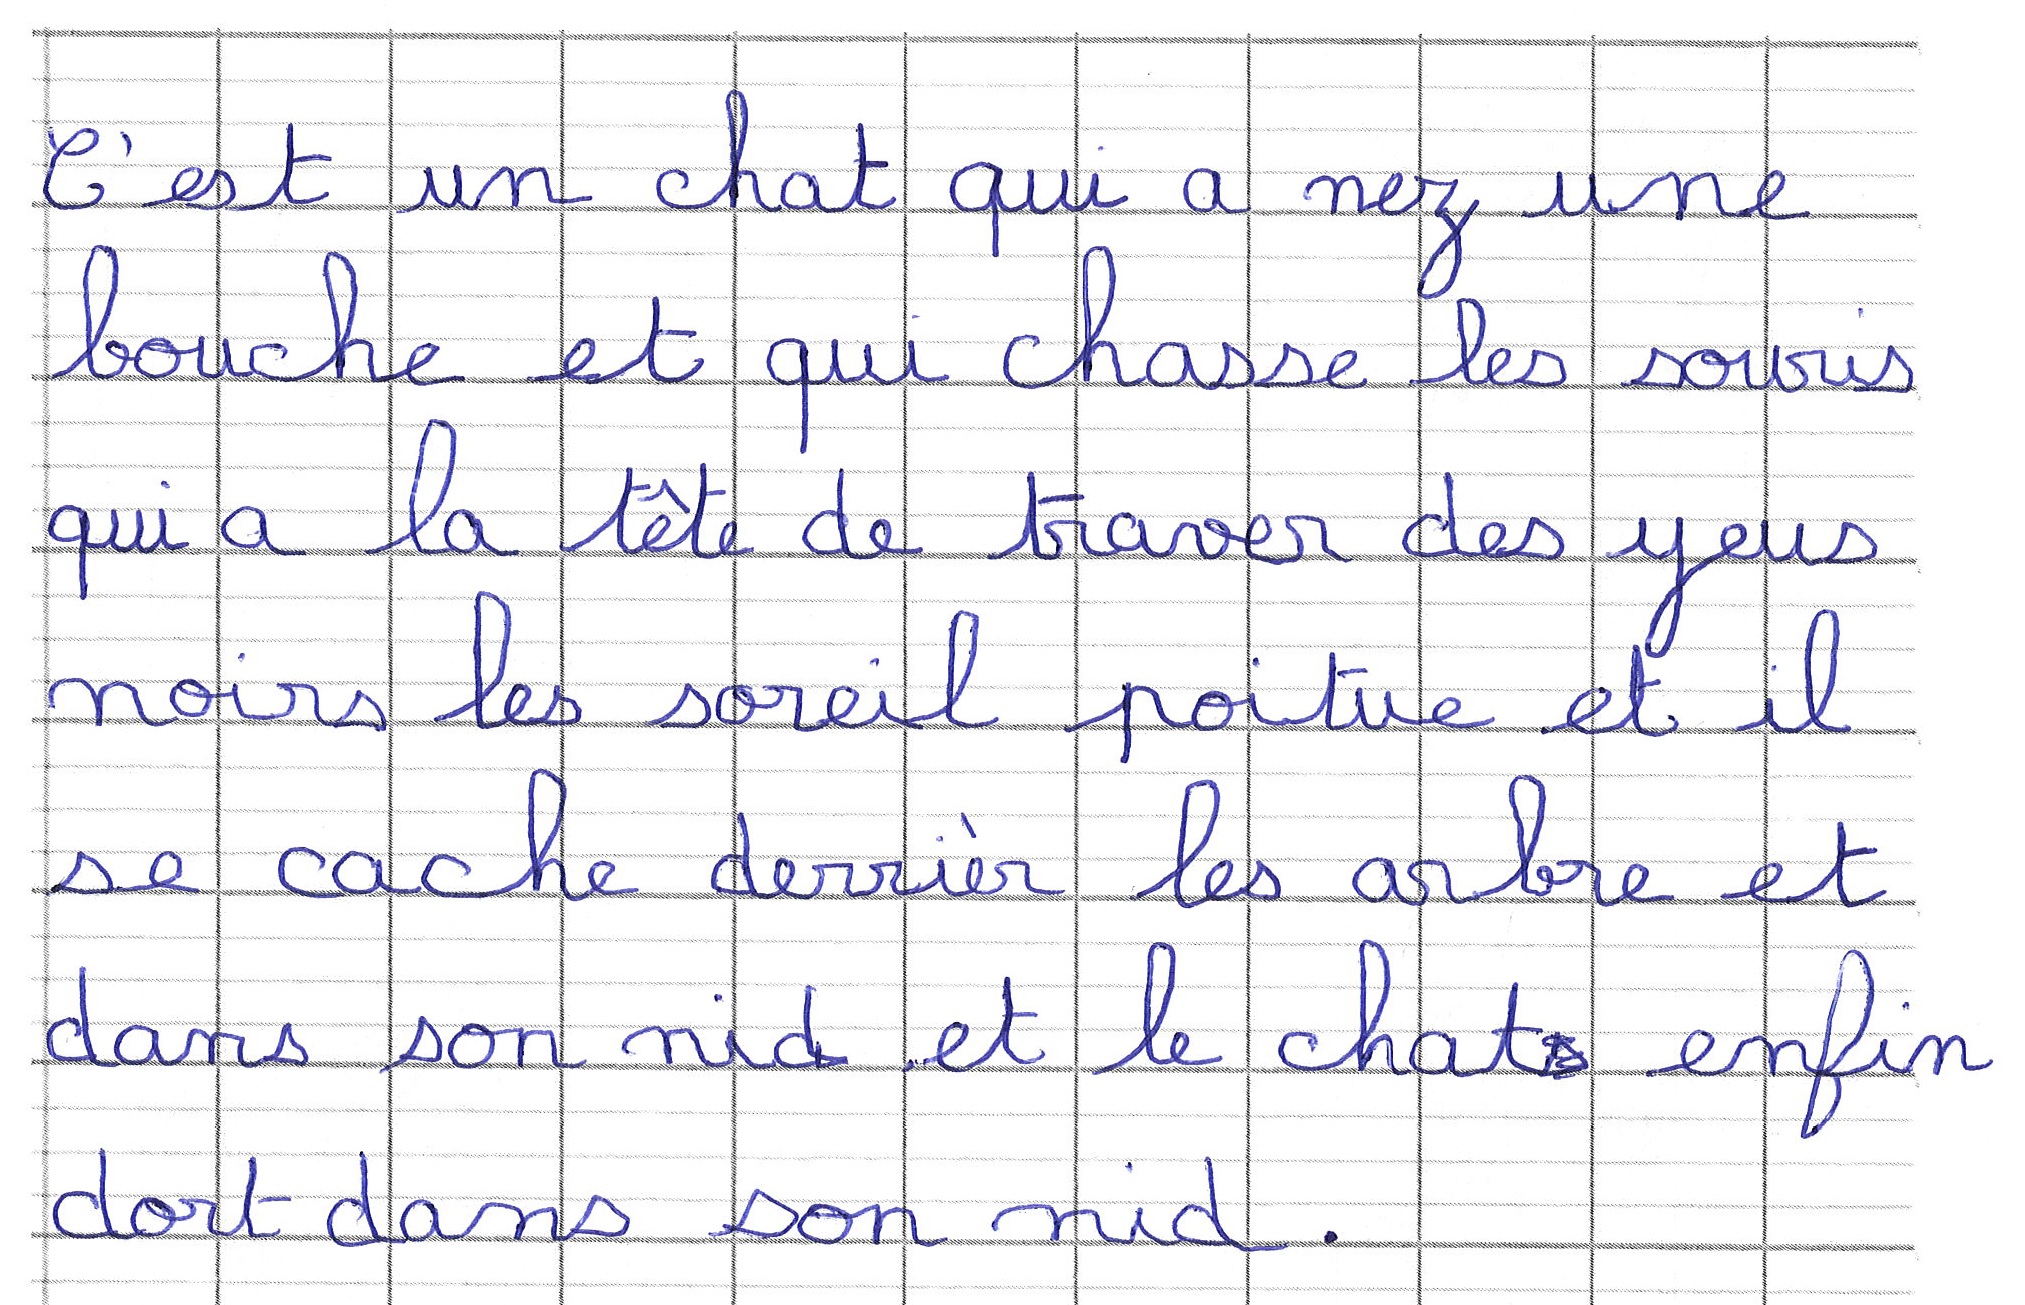 C'est un chat qui a nez une
bouche et qui chasse les souris
qui a la tête de traver des yeus
noirs les soreil poitue et il
se cache derrièr les arbre et
dans son nid et le chat enfin
dort dans son nid.